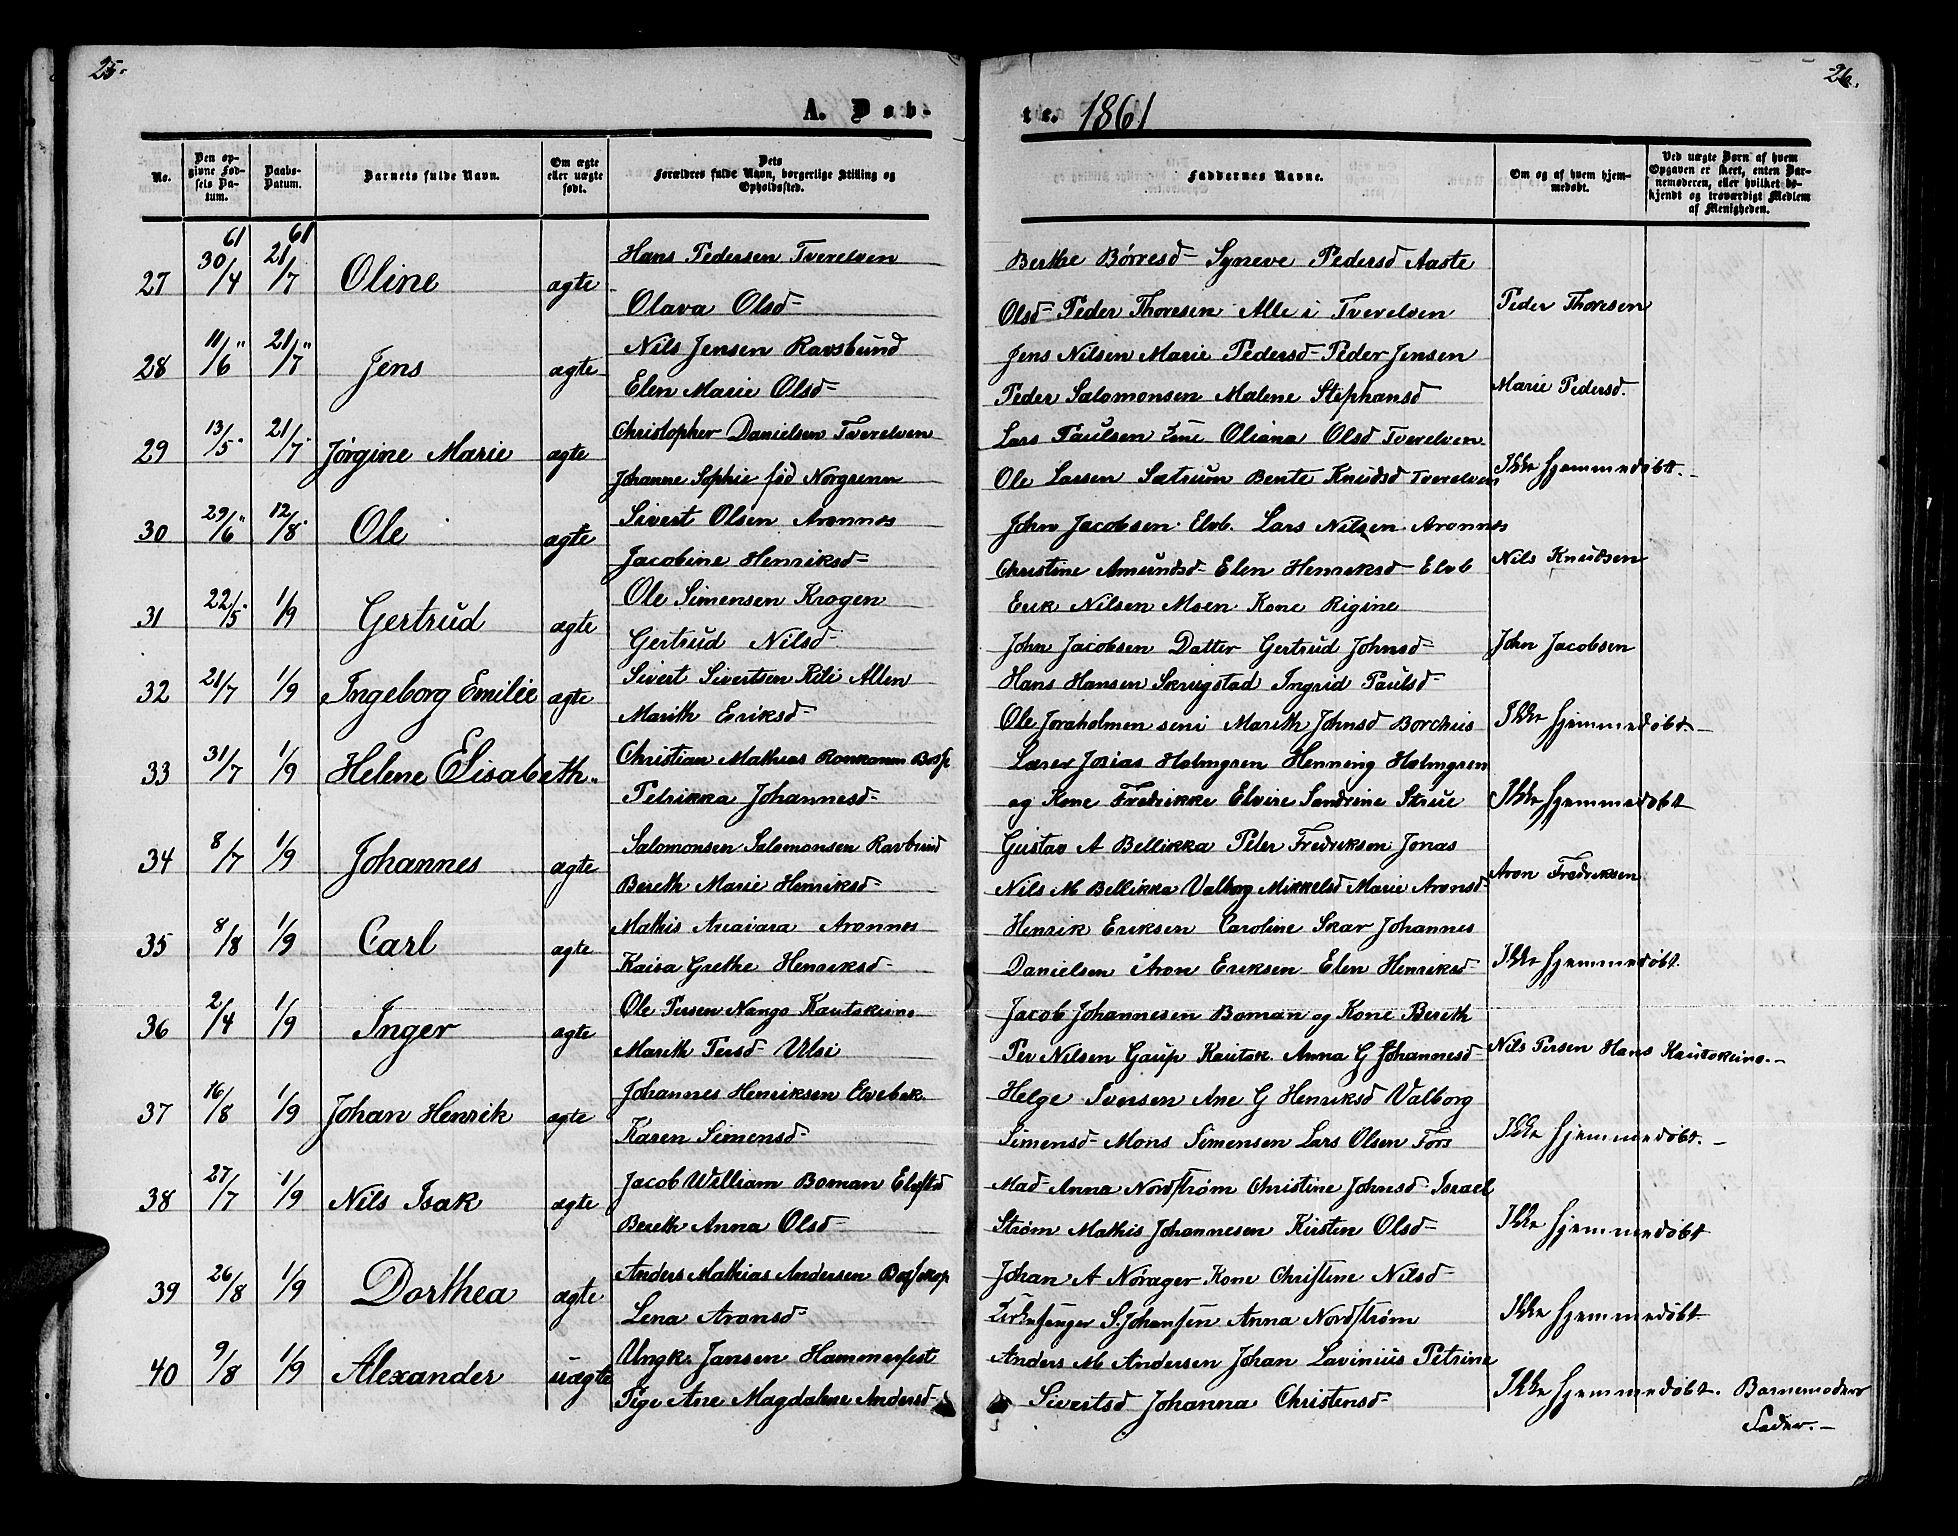 25.
26.
A. Døb-
te. 1861
No.
Den op-
givne Fød-
sels Da-
tum.
Daabs-
Datum.
Barnets fulde Navn.
Om ægte
eller uægte
født.
Dets
Forældres fulde Navn, borgerlige Stilling og
Opholdssted.
Faddernes Navne.
Om og af hvem hjem-
medøbt.
Ved uægte Børn af hvem
Opgaven er skeet, enten Bar-
nemoderen, eller hvilket be-
kjendt og troværdigt Medlem
af Menigheden.
27 30/4 61 21/7 61 Oline ægte
Hans Pedersen Tverelven
Olava Olsd-
Berthe Børresd- Syneve Pedersd Aaste
Olsd- Peder Thoresen Alle i Tverelven
Peder Thoresen
28 11/6 " 21/7 " Jens ægte
Nils Jensen Ravsbund
Elen Marie Olsd-
Jens Nilsen Marie Pedersd- Peder Jensen
Peder Salomonsen Malene Stephansd
Marie Pedersd.
29 13/5 " 21/7 " Jørgine Marie ægte
Christopher Danielsen Tverelven
Johanne Sophie fød Norgrenn
Lars Paulsen Oliana Olsd Tverelven
Ole Larsen Sætrum Bente Knudsd Tverelven
Ikke hjemmedøbt.-
30 29/6 " 12/8 " Ole ægte
Sivert Olsen Aronnes
Jacobine Henriksd-
John Jacobsen Elvb. Lars Nilsen Aronnes
Christine Amundsd- Elen Henriksd- Elvb
Nils Knudsen
31 22/5 " 1/9 Gertrud ægte
Ole Simensen Krogen
Gertrud Nilsd-
Erik Nilsen Moen Kone Rigine
John Jacobsen Datter Gertrud Johnsd-
John Jacobsen
32 21/7 1/9 Ingeborg Emilie ægte
Sivert Sivertsen Rili Alten
Marith Eriksd-
Hans Hansen Skrugstad Ingrid Paulsd-
Ole Joraholmen seni Marith Johnsd Borchus
Ikke hjemmedøbt.-
33 31/7 1/9 Helene Elisabeth.
Christian Mathias Ronkanen Bossp
Petrikka Johannesd-
Lærer Josias Holmgren Henning Holmgren
og Kone Fredrikke Elvire Sandrine Strue
Ikke hjemmedøbt
34 8/7 1/9 Johannes ægte
Salomonsen Salomonsen Ravbund
Bereth Marie Henriksd-
Gustav A Bellikka Peter Fredriksen Jonas
Nils M Bellikka Valborg Mikkelsd Marie Aronsd-
Aron Fredriksen
35 8/8 1/9 Carl ægte
Mathis Aicavara Aronnes
Kaisa Grethe Henriksd-
Henrik Eriksen Caroline Skar Johannes
Danielsen Aron Eriksen Elen Henriksd-
Ikke hjemmedøbt
36 2/4 1/9 Inger ægte
Ole Persen Nango Kautokeino
Marith Persd- Utsi
Jacob Johannesen Boman og Kone Bereth
Per Nilsen Gaup Kautok. Anna G Johannesd-
Nils Persen Hans Kautokeino.-
37 16/8 1/9 Johan Henrik ægte
Johannes Henriksen Elvebak.
Karen Simensd-
Helge Iversen Ane G Henriksd Valborg
Simensd- Mons Simensen Lars Olsen Fors
Ikke hjemmedøbt.-
38 27/7 1/9 Nils Isak ægte
Jacob William Boman Elvstd
Bereth Anna Olsd-
Mad- Anna Nordstrøm Christine Johnsd- Israel
Strøm Mathis Johannesen Kirsten Olsd-
Ikke hjemmedøbt
39 26/8 1/9 Dorthea ægte
Anders Mathias Andersen Bossekop
Lena Aronsd-
Johan A Norager Kone Christine Nilsd-
Kirkesanger S. Johansen Anna Nordstrøm
Ikke hjemmedøbt
40 9/8 1/9 Alexander uægte
Ungk. Jansen Hammerfest
Pige Ane Magdalene Andersd-
Anders M Andersen Johan Lavinius Petrine
Sivertsd Johanna Christensd-
Ikke hjemmedøbt. Barnemoders
Fader.-